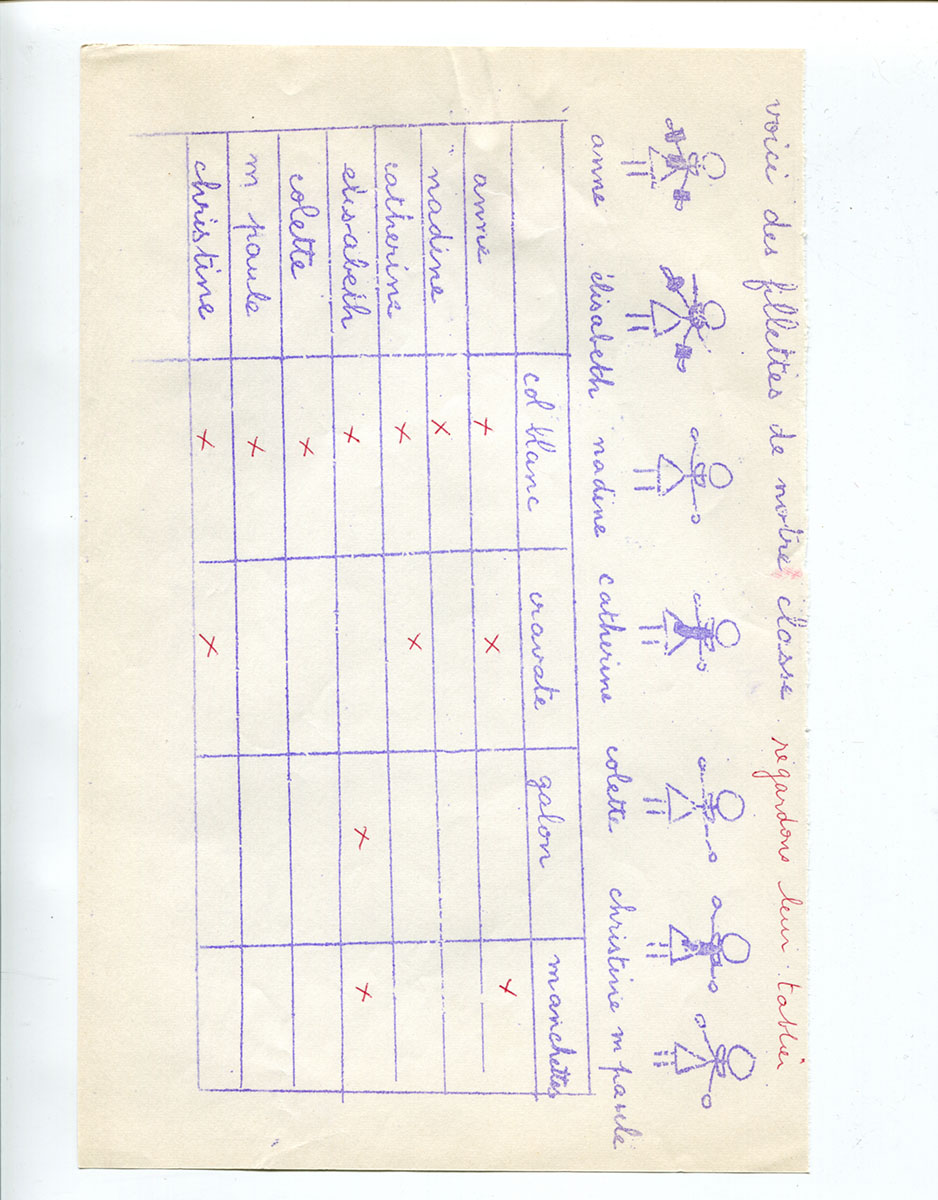 voici des fillettes de notre classe. regardons leur tablier
anne élisabeth nadine catherine colette christine m paule
col blanc cravate galon manchettes
anne x x x
nadine x
catherine x x
élisabeth x x x
colette x
m paule x
christine x x